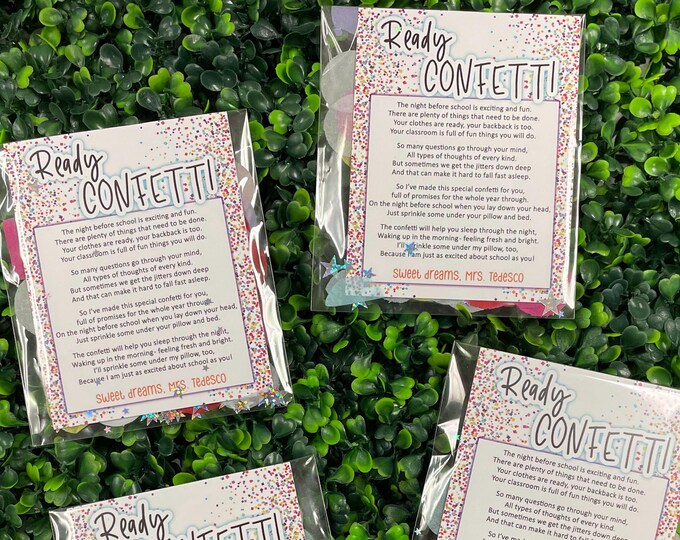 Ready
CONFETTI
The night before school is exciting and fun.
There are plenty of things that need to be done.
Your clothes are ready, your backback is too.
Your classroom is full of fun things you will do.
So many questions go through your mind,
All types of thoughts of every kind.
But sometimes we get the jitters down deep
And that can make it hard to fall fast asleep.
So I've made this special confetti for you,
full of promises for the whole year through.
On the night before school when you lay down your head,
Just sprinkle some under your pillow and bed.
The confetti will help you sleep through the night,
Waking up in the morning- feeling fresh and bright.
I'll sprinkle some under my pillow, too,
Because I am just as excited about school as you!
Sweet dreams, Mrs. Tedesco
Ready
CONFETTI
The night before school is exciting and fun.
There are plenty of things that need to be done.
Your clothes are ready, your backback is too.
Your classroom is full of fun things you will do.
So many questions go through your mind,
All types of thoughts of every kind.
But sometimes we get the jitters down deep
And that can make it hard to fall fast asleep.
So I've made this special confetti for you,
full of promises for the whole year through.
On the night before school when you lay down your head,
Just sprinkle some under your pillow and bed.
The confetti will help you sleep through the night,
Waking up in the morning- feeling fresh and bright.
I'll sprinkle some under my pillow, too,
Because I am just as excited about school as you!
Sweet dreams, Mrs. Tedesco
Ready
CONFETTI
The night before school is exciting and fun.
There are plenty of things that need to be done.
Your clothes are ready, your backback is too.
Your classroom is full of fun things you will do.
So many questions go through your mind,
All types of thoughts of every kind.
But sometimes we get the jitters down deep
And that can make it hard to fall fast asleep.
So I've made this special confetti for you,
Ready
CONFETTI